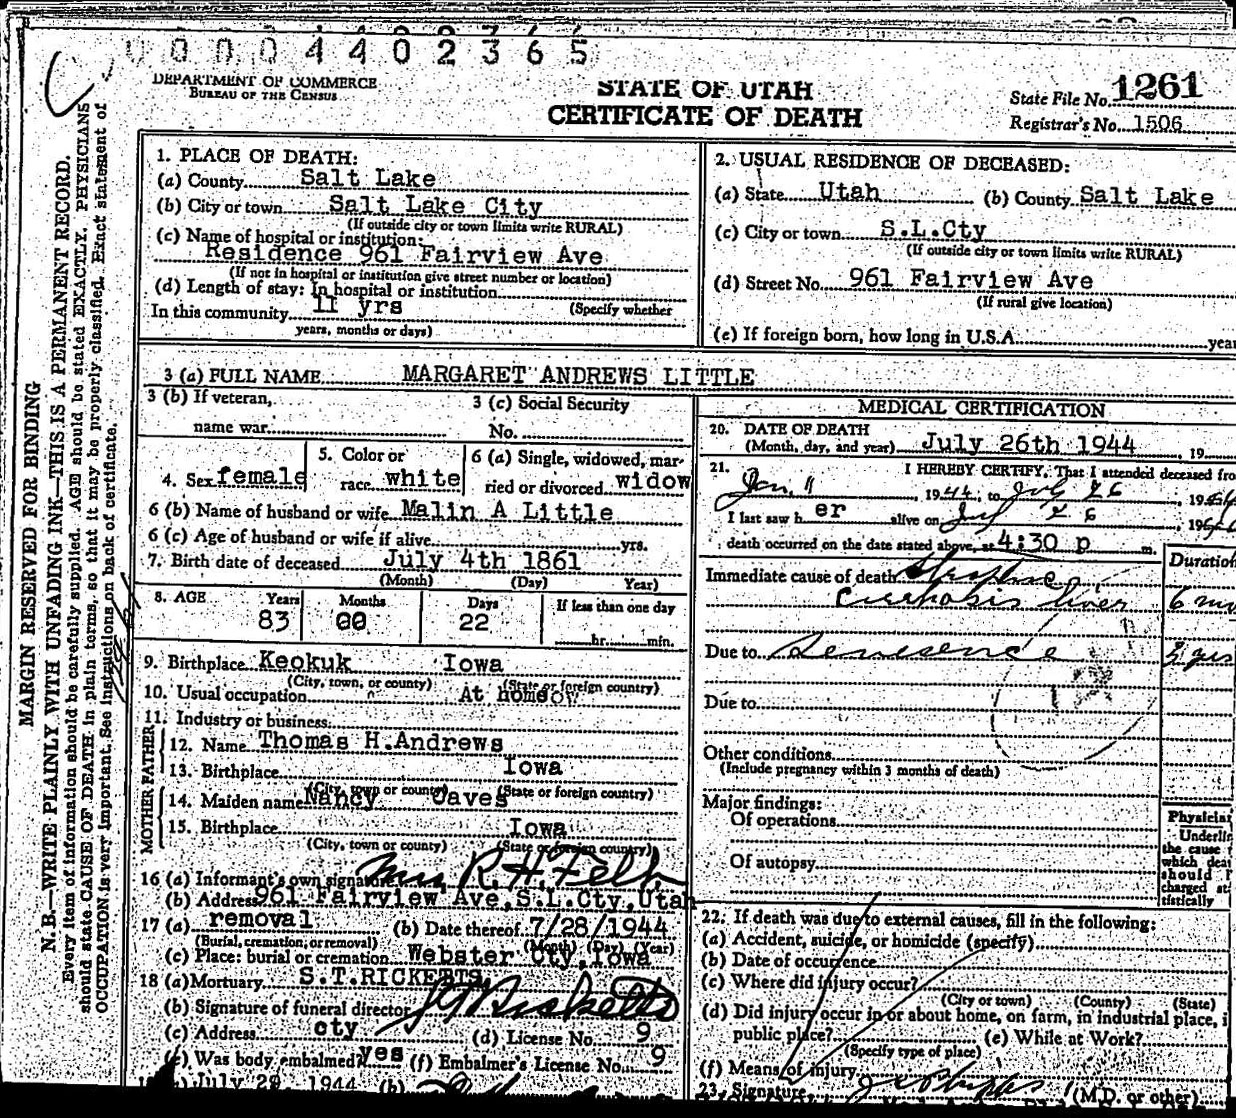 0 0 0 4 4 0 2 3 6 5
DEPARTMENT OF COMMERCE
BUREAU OF THE CENSUS
STATE OF UTAH
CERTIFICATE OF DEATH
State File No. 1261
Registrar's No. 1506
MARGIN RESERVED FOR BINDING
N. B.—WRITE PLAINLY WITH UNFADING INK—THIS IS A PERMANENT RECORD.
Every item of information should be carefully supplied. AGE should be stated EXACTLY. PHYSICIANS
should state CAUSE OF DEATH in plain terms, so that it may be properly classified. Exact statement of
OCCUPATION is very important. See instructions on back of certificate.
1. PLACE OF DEATH:
(a) County Salt Lake
(b) City or town Salt Lake City
(If outside city or town limits write RURAL)
(c) Name of hospital or institution:
Residence 961 Fairview Ave
(If not in hospital or institution give street number or location)
(d) Length of stay: In hospital or institution
In this community 11 yrs (Specify whether
years, months or days)
2. USUAL RESIDENCE OF DECEASED:
(a) State Utah (b) County Salt Lake
(c) City or town S.L.Cty
(If outside city or town limits write RURAL)
(d) Street No. 961 Fairview Ave
(If rural give location)
(e) If foreign born, how long in U.S.A. year
3 (a) FULL NAME MARGARET ANDREWS LITTLE
3 (b) If veteran, 3 (c) Social Security
name war No.
4. Sex female 5. Color or race white 6 (a) Single, widowed, mar-
ried or divorced widow
6 (b) Name of husband or wife Malin A Little
6 (c) Age of husband or wife if alive yrs.
7. Birth date of deceased July 4th 1861
(Month) (Day) Year)
8. AGE Years Months Days If less than one day
83 00 22 hr. min.
9. Birthplace Keokuk Iowa
(City, town, or county) (State or foreign country)
10. Usual occupation At home
11. Industry or business
FATHER
12. Name Thomas H.Andrews
13. Birthplace Iowa
(City, town or county) (State or foreign country)
MOTHER
14. Maiden name Nancy Oaves
15. Birthplace Iowa
(City, town or county) (State or foreign country)
16 (a) Informant's own signature Mrs R.H.
(b) Address 961 Fairview Ave,S.L.Cty,Utah
17 (a) removal (b) Date thereof 7/28/1944
(Burial, cremation, or removal) (Month) (Day) (Year)
(c) Place: burial or cremation Webster Cty,Iowa
18 (a) Mortuary S.T.RICKETTS
(b) Signature of funeral director Ricketts
(c) Address cty (d) License No. 9
(e) Was body embalmed? yes (f) Embalmer's License No. 9
July 29 1944 (b)
MEDICAL CERTIFICATION
20. DATE OF DEATH
(Month, day, and year) July 26th 1944 , 19
21. I HEREBY CERTIFY, That I attended deceased fro
Jan. 11 , 1944, to July 26 , 1944
I last saw h er alive on July 26 , 1944
death occurred on the date stated above, at 4:30 p m.
Duration
Immediate cause of death
liver 6 mo
Due to Senesence 3 yrs
Due to
Other conditions
(Include pregnancy within 3 months of death)
Major findings:
Of operations
Of autopsy
Physician
Underline
the cause
which deat
should
charged st
tistically
22. If death was due to external causes, fill in the following:
(a) Accident, suicide, or homicide (specify)
(b) Date of occurrence
(c) Where did injury occur?
(City or town) (County) (State)
(d) Did injury occur in or about home, on farm, in industrial place, i
public place? (e) While at Work?
(Specify type of place)
(f) Means of injury
23. Signature (M.D. or other)